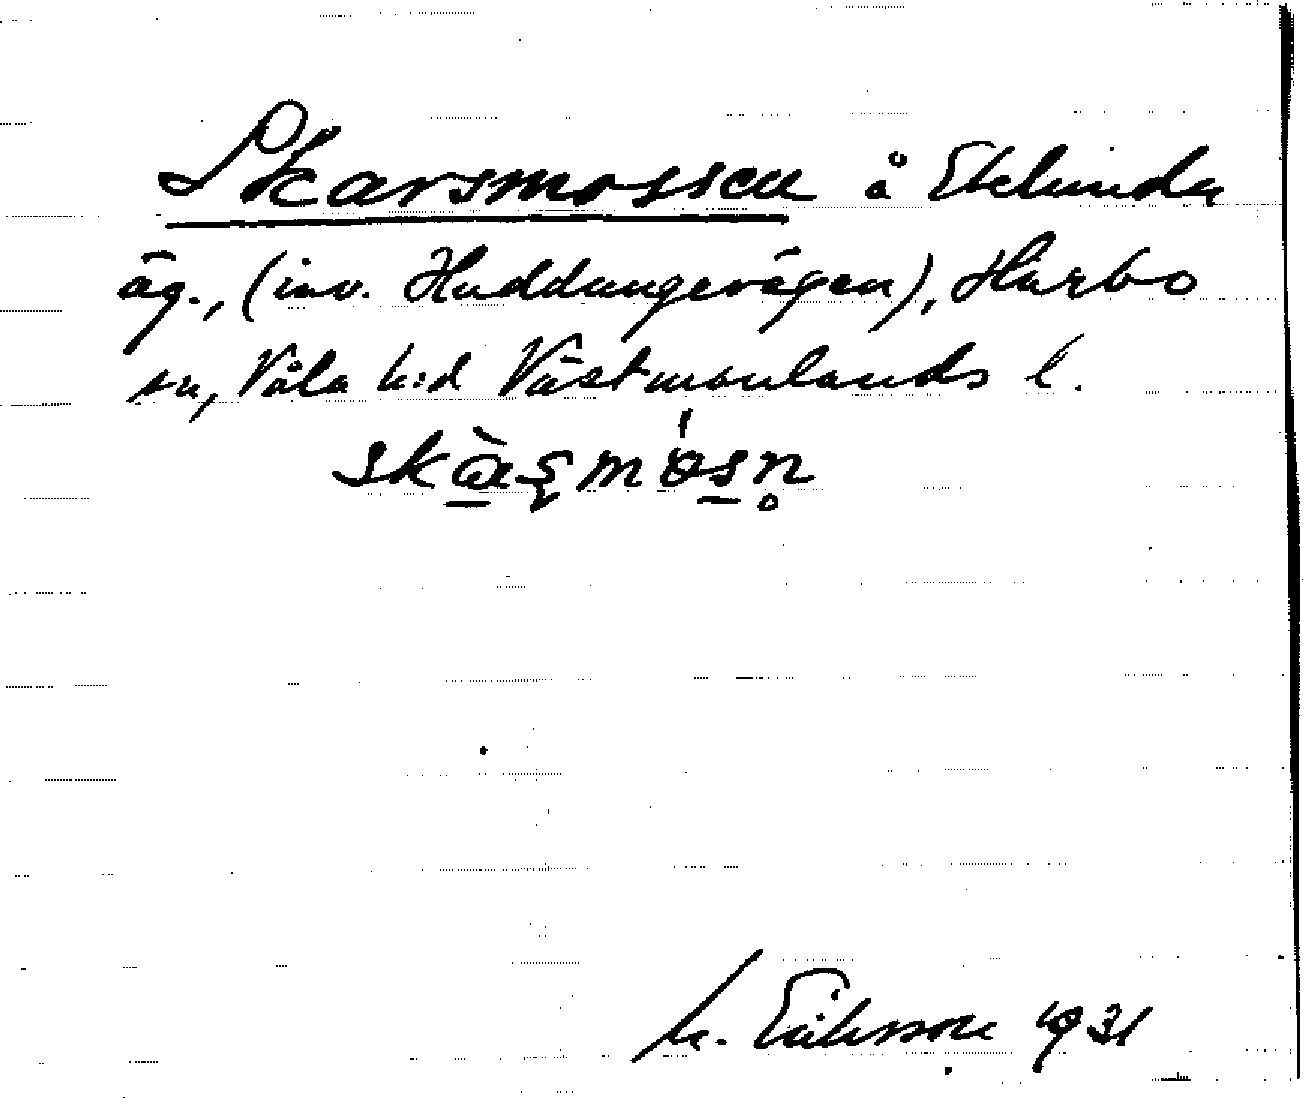 Skarsmossen å Eklunda
äg., (inv. Huddungevägen), Harbo
sn, Våla h:d Västmanlands l.
skàʂmósn̥
M. Eriksson 1931